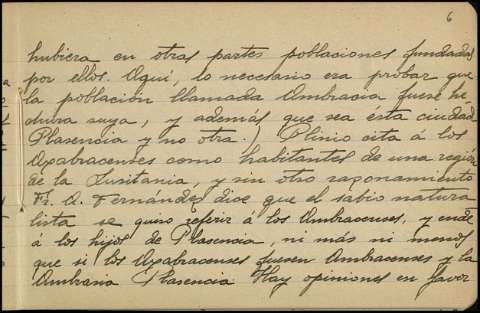 6
hubiera en otras partes poblaciones fundadas
por ellos. Aquí, lo necesario era probar que
la población llamada Ambracia fuese he-
chura suya, y además que sea ésta ciudad
Plasencia y no otra.) Plinio cita á los
Axabracenses como habitantes de una región
de la Lusitania, y sin otro razonamiento
Fr. A. Fernández dice que el sabio natura
lista se quiso referir á los Ambracenses, y
á los hijos de Plasencia, ni más ni menos
que si los Axabracenses fuesen Ambracenses y la
Ambracia Plasencia Hay opiniones en favor